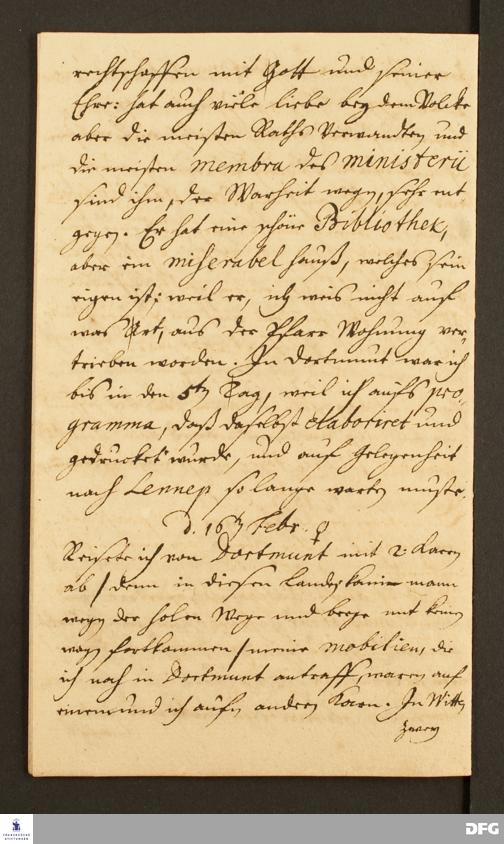 rechtschaffen mit Gott und seiner
Ehre: hat auch viele liebe bey dem Volcke
aber die meisten Raths Verwandten und
die meisten membra des ministerii
sind ihm, der Warheit wegen, sehr ent
gegen. Er hat eine schöne Bibliothek,
aber ein miserabel hauß, welches sein
eigen ist; weil er, ich weis nicht auf
was Art, aus der Pfarr Wohnung ver-
trieben worden. In Dortmunt war ich
bis in den 5ten Tag, weil ich aufs pro-
gramma, daß daselbst elaboriret und
gedrucket wurde, und auf Gelegenheit
nach Lennep so lange warten muste.
d. 16ten Febr. ♀
Reisete ich von Dortmunt mit 2. Karen
ab / denn in diesen Landen kan mann
wegen der holen Wege und berge mit keinen
wagen fortkommen / meine mobilien, die
ich noch in Dortmunt antraff, waren auf
einem und ich aufn andern Karn. In Witten
zwey
FRANCKESCHE
STIFTUNGEN
DFG